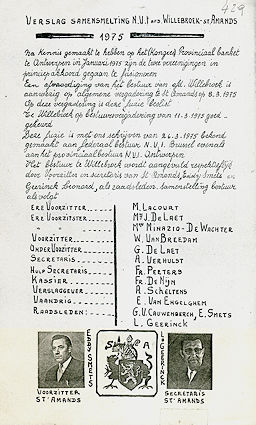 429
VERSLAG SAMENSMELTING N.V.I AFD. WILLEBROEK-ST AMANDS
1975
Na kennis gemaakt te hebben op het (Kongres) Provinciaal banket
te Antwerpen in Januari 1975 zijn de twee verenigingen in
principe akkoord gegaan te fusionneren
Een afvaardiging van het bestuur van afd. Willebroek is
aanwezig op algemene vergadering te St Amands op 8.3.1975
Op deze vergadering is deze fusie beslist
Te Willebroek op bestuursvergadering van 11-3-1975 goed-
gekeurd
Deze fusie is met ons schrijven van 26-3-1975 bekend
gemaakt aan federaal bestuur N.V.I. Brussel evenals
aan het provinciaal bestuur NVI. Antwerpen
Het bestuur te Willebroek wordt aangevuld respektievelijk
door Voorzitter en secretaris van St Amands, Eddy Smets en
Geerinck Leonard, als raadsleden. samenstelling bestuur
als volgt
ERE VOORZITTER M. LACOURT
ERE VOORZITSTER MW J. DE LAET
" MW MINAZIO-DE WACHTER
VOORZITTER W. VAN BREEDAM
ONDERVOORZITTER G. DE LAET
SECRETARIS A. VERHULST
HULP SECRETARIS FR. PEETERS
KASSIER FR. DE NIJN
VERSLAGGEVER A. SCHELTENS
VAANDRIG E. VAN ENGELGHEM
RAADSLEDEN: G. V. CAUWENBERGH, E. SMETS
L. GEERINCK
EDDY SMETS
S A
L. GEERINCK
VOORZITTER
ST AMANDS
SECRETARIS
ST AMANDS